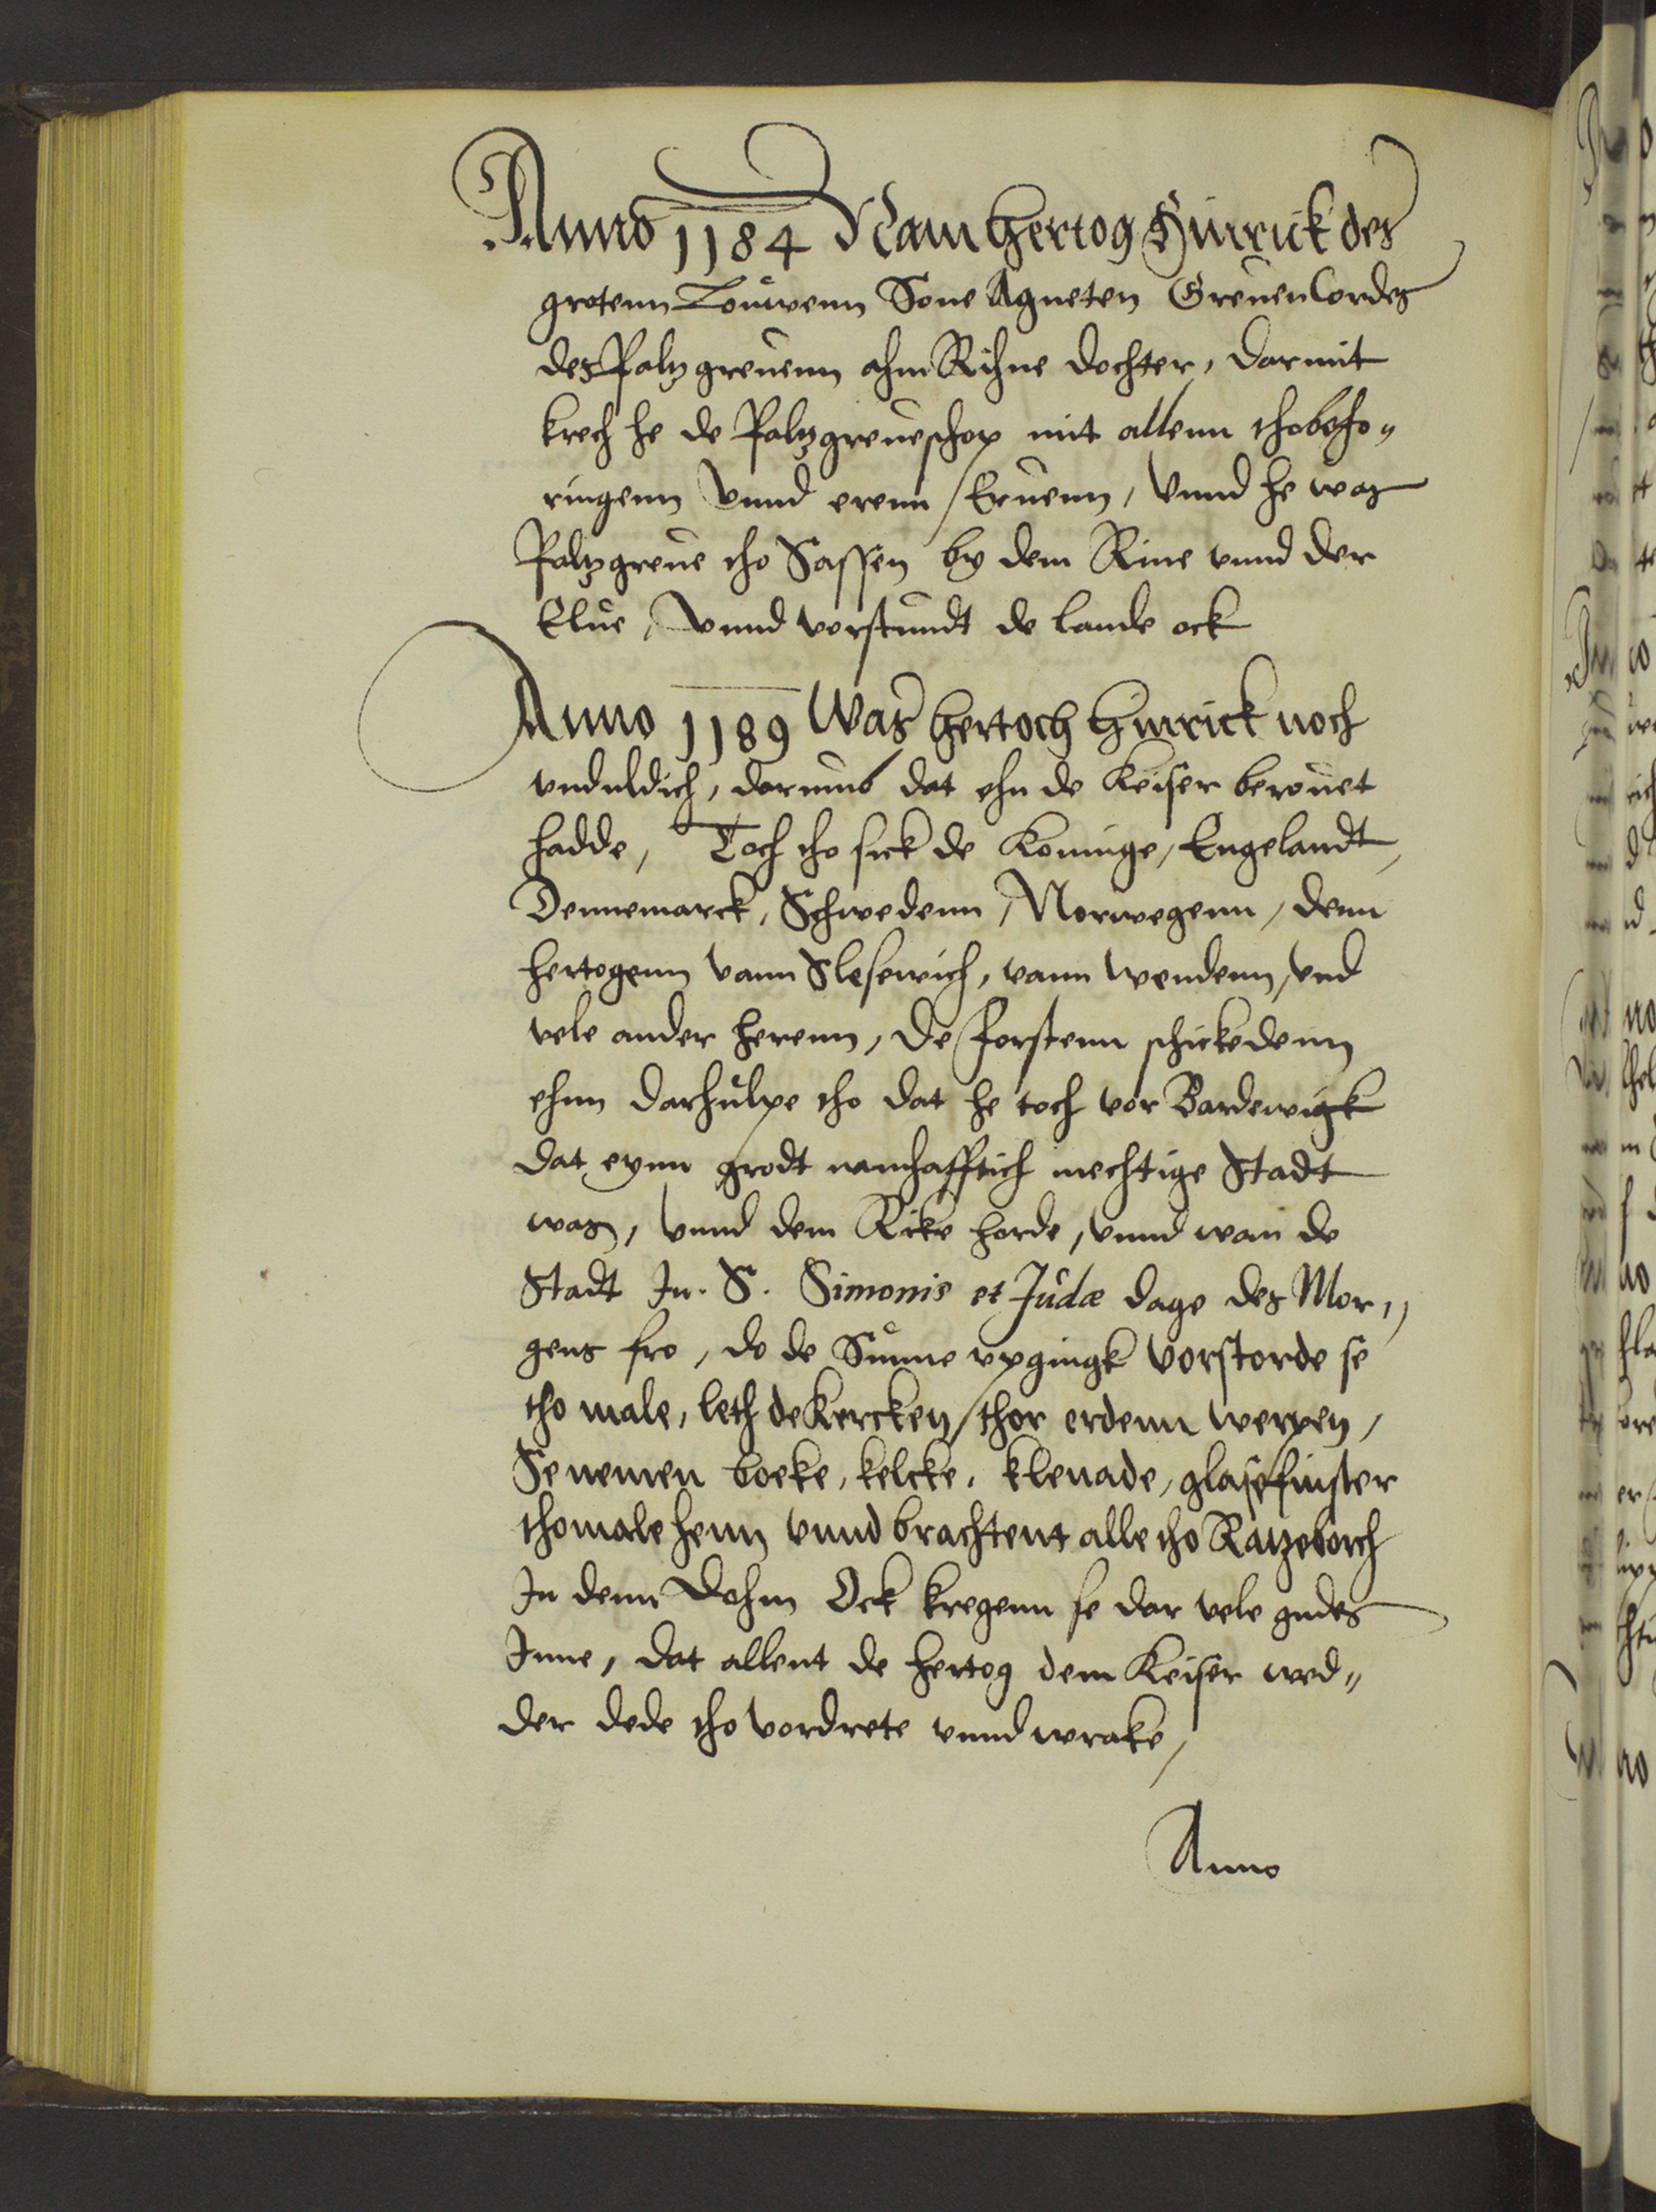 Anno 1184 Nam hertog Hinrick des
grotenn Louwenn Sone Agneten Greuen Cordes
des Paltzgreuenn ahm Rihne dochter, darmit
krech he de Paltzgreueschop mit allenn thobeho„
ringenn vnnd erenn Eruenn, vnnd he was
Paltzgreue tho Sassen by dem Rine vnnd der
Elue, vnnd vorstundt de lande ock
Anno 1189 Was hertoch Hinrick noch
vnduldich, darumb dat ehn de Keiser berouet
hadde, Toch tho sick de Koninge, Engelandt,
Dennemarck, Schwedenn, Norwegenn, denn
hertogenn vann Slesewich, vann Wendenn, vnd
vele ander herenn, de forstenn schickedenn
ehnn darhulpe tho dat he toch vor Bardewigk
dat eynn grodt namhafftich mechtige Stadt
was, vnnd dem Rike horde, vnnd wan de
Stadt In. S. Simonis et Judæ dage des Mor„
gens fro, do de Sunne vpgingk vorstorde se
tho male, leth de Kercken thor erdenn werpen,
Se nemen boeke, kelcke, klenade, glasefinster
thomale henn vnnd brachtent alle tho Ratzeborch
In denn Dohm Ock kregenn se dar vele gudes
Inne, dat allent de hertog dem Keiser wed„
der dede tho vordrete vnnd wrake,
Anno